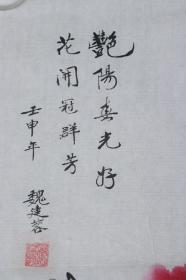 艷陽春光好
花開冠群芳
壬申年
魏建蓉